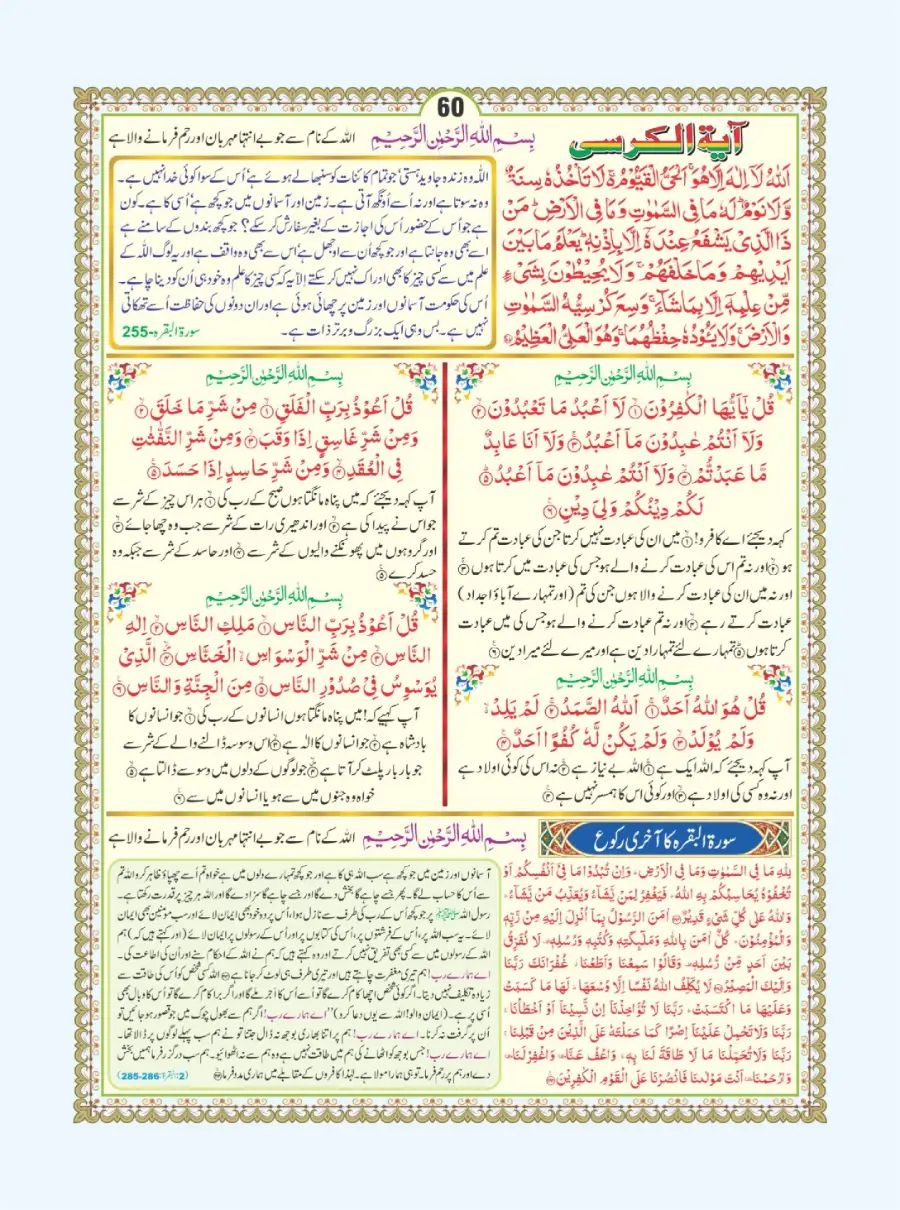 60
آية الكرسى
بِسْمِ اللهِ الرَّحْمٰنِ الرَّحِيْمِ
اللہ کے نام سے جو بے انتہا مہربان اور رحم فرمانے والا ہے
اَللهُ لَآ اِلٰهَ اِلَّا هُوَ ۚ اَلْحَيُّ الْقَيُّوْمُ ۚ لَا تَاْخُذُهٗ سِنَةٌ
وَّلَا نَوْمٌ ؕ لَهٗ مَا فِى السَّمٰوٰتِ وَمَا فِى الْاَرْضِ ؕ مَنْ
ذَا الَّذِىْ يَشْفَعُ عِنْدَهٗٓ اِلَّا بِاِذْنِهٖ ؕ يَعْلَمُ مَا بَيْنَ
اَيْدِيْهِمْ وَمَا خَلْفَهُمْ ۚ وَلَا يُحِيْطُوْنَ بِشَىْءٍ
مِّنْ عِلْمِهٖٓ اِلَّا بِمَا شَآءَ ۚ وَسِعَ كُرْسِيُّهُ السَّمٰوٰتِ
وَالْاَرْضَ ۚ وَلَا يَئُوْدُهٗ حِفْظُهُمَا ۚ وَهُوَ الْعَلِىُّ الْعَظِيْمُ
اللہ وہ زندہ جاوید ہستی، جو تمام کائنات کو سنبھالے ہوئے ہے اُس کے سوا کوئی خدا نہیں ہے۔
وہ نہ سوتا ہے اور نہ اُسے اونگھ آتی ہے۔ زمین اور آسمانوں میں جو کچھ ہے اُسی کا ہے۔ کون
ہے جو اُس کے حضور اُس کی اجازت کے بغیر سفارش کر سکے؟ جو کچھ بندوں کے سامنے ہے
اسے بھی وہ جانتا ہے اور جو کچھ اُن سے اوجھل ہے اُس سے بھی وہ واقف ہے اور یہ لوگ اللہ کے
علم میں سے کسی چیز کا بھی ادراک نہیں کر سکتے اِلّا یہ کہ کسی چیز کا علم وہ خود ہی اُن کو دینا چاہے۔
اُس کی حکومت آسمانوں اور زمین پر چھائی ہوئی ہے اور ان دونوں کی حفاظت اُسے تھکاتی
نہیں ہے۔ بس وہی ایک بزرگ و برتر ذات ہے۔ سورۃ البقرہ-255
بِسْمِ اللهِ الرَّحْمٰنِ الرَّحِيْمِ
قُلْ يٰٓاَيُّهَا الْكٰفِرُوْنَ ۙ۱ لَآ اَعْبُدُ مَا تَعْبُدُوْنَ ۙ۲
وَلَآ اَنْتُمْ عٰبِدُوْنَ مَآ اَعْبُدُ ۚ۳ وَلَآ اَنَا عَابِدٌ
مَّا عَبَدْتُّمْ ۙ۴ وَلَآ اَنْتُمْ عٰبِدُوْنَ مَآ اَعْبُدُ ؕ۵
لَكُمْ دِيْنُكُمْ وَلِىَ دِيْنِ ۶
کہہ دیجئے اے کافرو! ۱ میں ان کی عبادت نہیں کرتا جن کی عبادت تم کرتے
ہو ۲ اور نہ تم اس کی عبادت کرنے والے ہو جس کی عبادت میں کرتا ہوں ۳
اور نہ میں ان کی عبادت کرنے والا ہوں جن کی تم (اور تمہارے آباؤ اجداد)
عبادت کرتے رہے ۴ اور نہ تم عبادت کرنے والے ہو جس کی میں عبادت
کرتا ہوں ۵ تمہارے لئے تمہارا دین ہے اور میرے لئے میرا دین ۶
بِسْمِ اللهِ الرَّحْمٰنِ الرَّحِيْمِ
قُلْ هُوَ اللهُ اَحَدٌ ۚ۱ اَللهُ الصَّمَدُ ۚ۲ لَمْ يَلِدْ ۙ
وَلَمْ يُوْلَدْ ۙ۳ وَلَمْ يَكُنْ لَّهٗ كُفُوًا اَحَدٌ ۴
آپ کہہ دیجئے کہ اللہ ایک ہے ۱ اللہ بے نیاز ہے ۲ نہ اس کی کوئی اولاد ہے
اور نہ وہ کسی کی اولاد ہے ۳ اور کوئی اس کا ہمسر نہیں ہے ۴
بِسْمِ اللهِ الرَّحْمٰنِ الرَّحِيْمِ
قُلْ اَعُوْذُ بِرَبِّ الْفَلَقِ ۙ۱ مِنْ شَرِّ مَا خَلَقَ ۙ۲
وَمِنْ شَرِّ غَاسِقٍ اِذَا وَقَبَ ۙ۳ وَمِنْ شَرِّ النَّفّٰثٰتِ
فِى الْعُقَدِ ۙ۴ وَمِنْ شَرِّ حَاسِدٍ اِذَا حَسَدَ ۵
آپ کہہ دیجئے کہ میں پناہ مانگتا ہوں صبح کے رب کی ۱ ہر اس چیز کے شر سے
جو اس نے پیدا کی ہے ۲ اور اندھیری رات کے شر سے جب وہ چھا جائے ۳
اور گرہوں میں پھونکنے والیوں کے شر سے ۴ اور حاسد کے شر سے جبکہ وہ
حسد کرے ۵
بِسْمِ اللهِ الرَّحْمٰنِ الرَّحِيْمِ
قُلْ اَعُوْذُ بِرَبِّ النَّاسِ ۙ۱ مَلِكِ النَّاسِ ۙ۲ اِلٰهِ
النَّاسِ ۙ۳ مِنْ شَرِّ الْوَسْوَاسِ ۙ الْخَنَّاسِ ۙ۴ الَّذِىْ
يُوَسْوِسُ فِىْ صُدُوْرِ النَّاسِ ۙ۵ مِنَ الْجِنَّةِ وَالنَّاسِ ۶
آپ کہیے کہ! میں پناہ مانگتا ہوں انسانوں کے رب کی ۱ جو انسانوں کا
بادشاہ ہے ۲ جو انسانوں کا الٰہ ہے ۳ اس وسوسہ ڈالنے والے کے شر سے
جو بار بار پلٹ کر آتا ہے ۴ جو لوگوں کے دلوں میں وسوسے ڈالتا ہے ۵
خواہ وہ جنوں میں سے ہو یا انسانوں میں سے ۶
سورۃ البقرہ کا آخری رکوع
بِسْمِ اللهِ الرَّحْمٰنِ الرَّحِيْمِ
اللہ کے نام سے جو بے انتہا مہربان اور رحم فرمانے والا ہے
لِلّٰهِ مَا فِى السَّمٰوٰتِ وَمَا فِى الْاَرْضِ ؕ وَاِنْ تُبْدُوْا مَا فِىْٓ اَنْفُسِكُمْ اَوْ
تُخْفُوْهُ يُحَاسِبْكُمْ بِهِ اللهُ ؕ فَيَغْفِرُ لِمَنْ يَّشَآءُ وَيُعَذِّبُ مَنْ يَّشَآءُ ؕ
وَاللهُ عَلٰى كُلِّ شَىْءٍ قَدِيْرٌ اٰمَنَ الرَّسُوْلُ بِمَآ اُنْزِلَ اِلَيْهِ مِنْ رَّبِّهٖ
وَالْمُؤْمِنُوْنَ ؕ كُلٌّ اٰمَنَ بِاللهِ وَمَلٰٓئِكَتِهٖ وَكُتُبِهٖ وَرُسُلِهٖ ۟ لَا نُفَرِّقُ
بَيْنَ اَحَدٍ مِّنْ رُّسُلِهٖ ۟ وَقَالُوْا سَمِعْنَا وَاَطَعْنَا ۫ غُفْرَانَكَ رَبَّنَا
وَاِلَيْكَ الْمَصِيْرُ لَا يُكَلِّفُ اللهُ نَفْسًا اِلَّا وُسْعَهَا ؕ لَهَا مَا كَسَبَتْ
وَعَلَيْهَا مَا اكْتَسَبَتْ ؕ رَبَّنَا لَا تُؤَاخِذْنَآ اِنْ نَّسِيْنَآ اَوْ اَخْطَاْنَا ۚ
رَبَّنَا وَلَا تَحْمِلْ عَلَيْنَآ اِصْرًا كَمَا حَمَلْتَهٗ عَلَى الَّذِيْنَ مِنْ قَبْلِنَا ۚ
رَبَّنَا وَلَا تُحَمِّلْنَا مَا لَا طَاقَةَ لَنَا بِهٖ ۚ وَاعْفُ عَنَّا ۥ وَاغْفِرْ لَنَا ۥ
وَارْحَمْنَا ۥ اَنْتَ مَوْلٰىنَا فَانْصُرْنَا عَلَى الْقَوْمِ الْكٰفِرِيْنَ
آسمانوں اور زمین میں جو کچھ ہے سب اللہ ہی کا ہے اور جو کچھ تمہارے دلوں میں ہے خواہ تم اُسے چھپاؤ یا ظاہر کرو اللہ تم
سے اُس کا حساب لے گا۔ پھر جسے چاہے گا بخش دے گا اور جسے چاہے گا سزا دے گا اور اللہ ہر چیز پر قدرت رکھتا ہے۔
رسول اللہ ﷺ پر جو کچھ اُس کے رب کی طرف سے نازل ہوا، اُس پر وہ خود بھی ایمان لائے اور سب مومنین بھی ایمان
لائے۔ یہ سب اللہ پر، اُس کے فرشتوں پر، اُس کی کتابوں پر اور اُس کے رسولوں پر ایمان لائے (اور کہتے ہیں کہ) ہم
اللہ کے رسولوں میں سے کسی بھی تفریق نہیں کرتے اور وہ کہتے ہیں کہ ہم نے اللہ کے احکام سنے اور اُن کی اطاعت کی۔
اے ہمارے رب! ہم تیری مغفرت چاہتے ہیں اور تیری طرف ہی لوٹ کر جانا ہے اللہ کسی شخص کو اُس کی طاقت سے
زیادہ تکلیف نہیں دیتا۔ اگر کوئی شخص اچھا کام کرے گا تو اُسے اُس کا اجر ملے گا اور اگر برا کام کرے گا تو اُس کا وبال بھی
اُسی پر ہے۔ (ایمان والو! اللہ سے یوں دعا کرو) "اے ہمارے رب! اگر ہم سے بھول چوک میں جو قصور ہو جائیں تو
اُن پر گرفت نہ کرنا۔ اے ہمارے رب! ہم پر اتنا بھاری بوجھ نہ ڈال جتنا تو نے ہم سب پہلے لوگوں پر ڈالا تھا۔
اے ہمارے رب! جس بوجھ کو اٹھانے کی ہم میں طاقت نہیں ہے وہ ہم سے نہ اٹھوائیو۔ ہم سب درگزر فرما ہمیں بخش
دے اور ہم پر رحم فرما۔ تو ہی ہمارا مولا ہے۔ لہٰذا کافروں کے مقابلے میں ہماری مدد فرما (2:البقرۃ:286-285)